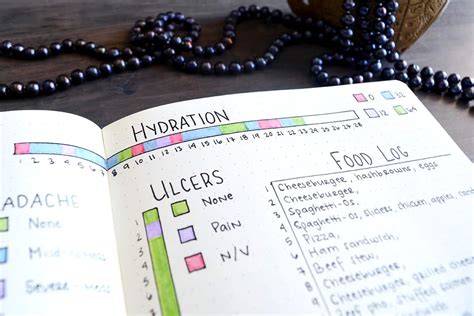 HYDRATION
0 32
12 64
1 2 3 4 5 6 7 8 9 10 11 12 13 14 15 16 17 18 19 20 21 22 23 24 25 26 27 28
ADACHE
None
Severe
ULCERS
None
Pain
N/V
1
2
3
4
5
6
7
FOOD LOG
1 Cheeseburger, hashbrowns, eggs
2 Cheeseburger,
3 Spaghetti-Os,
4 Spaghetti-Os, sliders, chicken, apples,
5 Pizza,
6 Ham sandwich,
7 Beef stew,
8 Cheeseburger,
Cheeseburger, grilled cheese
Beef stew,
Cheeseburger